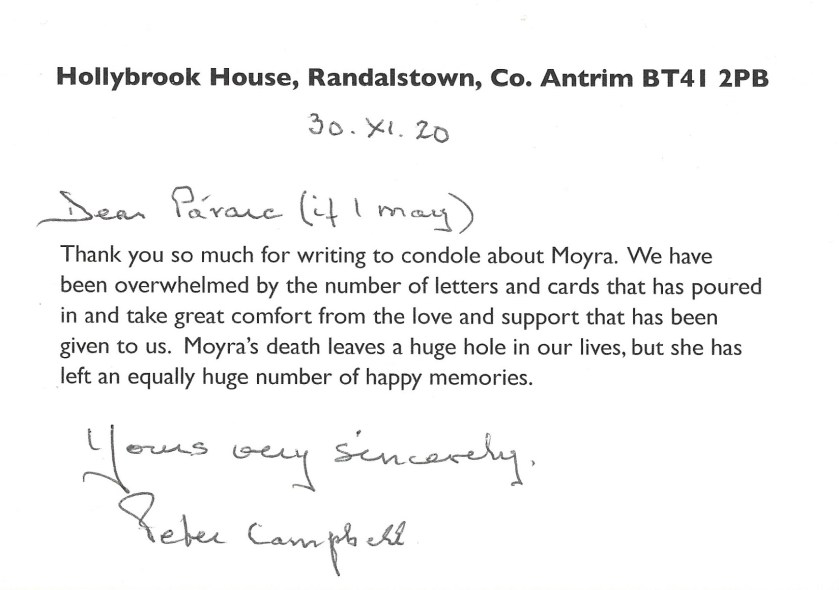 Hollybrook House, Randalstown, Co. Antrim BT41 2PB
30. XI. 20
Dear Páraic (if I may)
Thank you so much for writing to condole about Moyra. We have
been overwhelmed by the number of letters and cards that has poured
in and take great comfort from the love and support that has been
given to us. Moyra's death leaves a huge hole in our lives, but she has
left an equally huge number of happy memories.
Yours very sincerely,
Peter Campbell